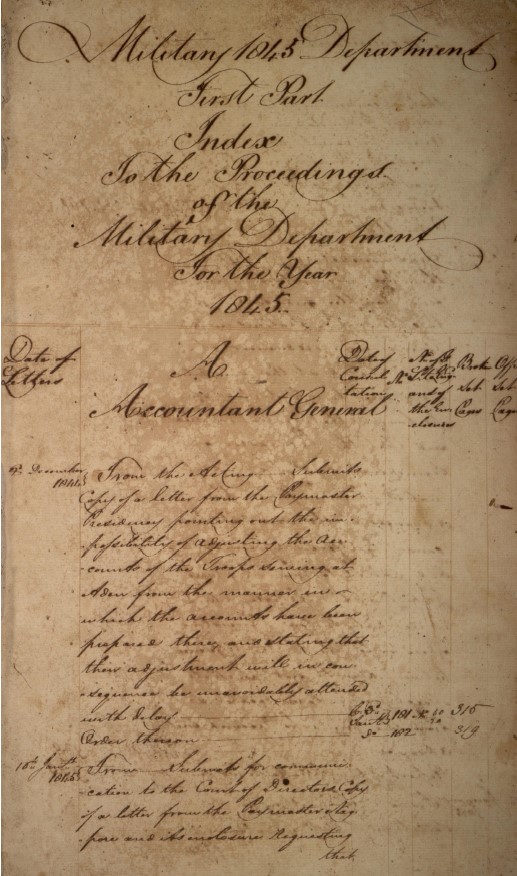 Military 1845 Department
First Part
Index
To the Proceedings
of the
Military Department
For the Year
1845.
Date of
Letters
A
Accountant General
Date of
Consul
tation
No
and of
the In
closures
Book
December
1844
From the Acting Submits
Copy of a letter from the Paymaster
Presidency pointing out the im-
possibility of adjusting the Ac-
counts of the Troops serving at
Aden from the manner in
which the accounts have been
prepared there, and stating that
their adjustment will in con
sequence be unavoidably attended
with delay 181 315
Order thereon do 182 319
15th Jany
1845
From Submits for communi
cation to the Court of Directors Copy
of a letter from the Paymaster
pore and its enclosure requesting
that